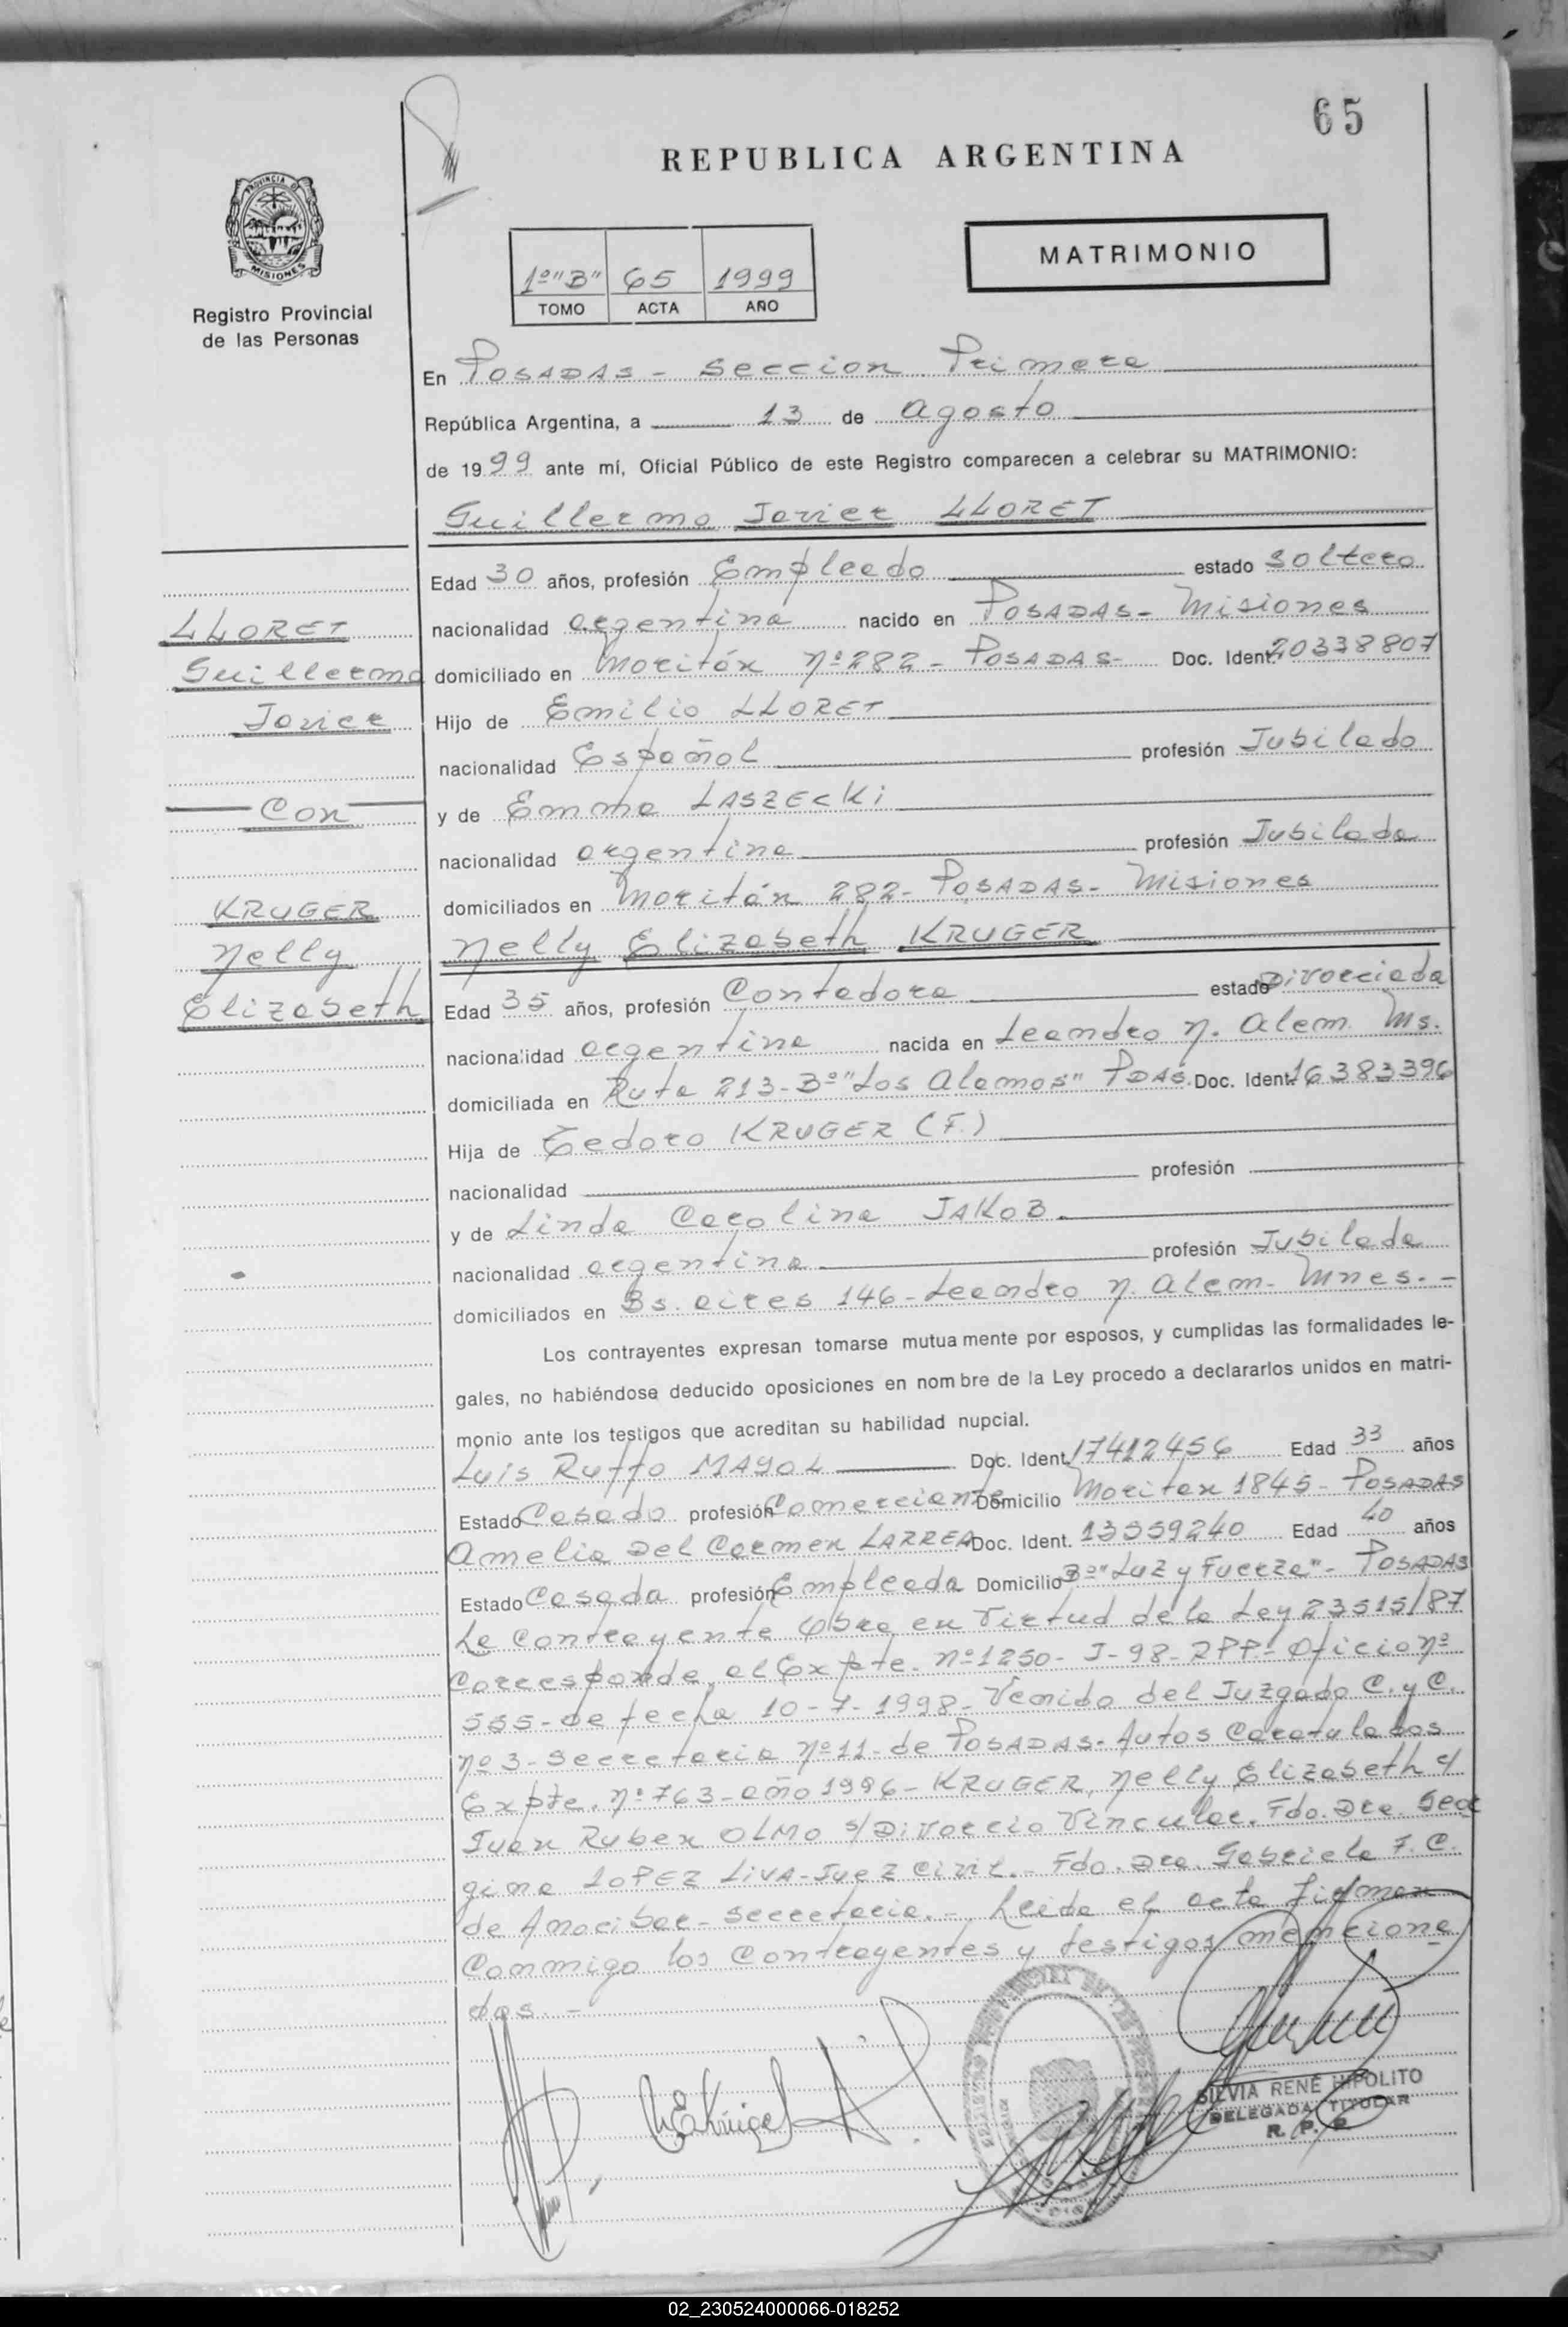 65
REPUBLICA ARGENTINA
PROVINCIA DE
MISIONES
Registro Provincial
de las Personas
1º "B" 65 1999
TOMO ACTA AÑO
MATRIMONIO
En POSADAS - Seccion Primera
República Argentina, a 13 de agosto
de 1999 ante mí, Oficial Público de este Registro comparecen a celebrar su MATRIMONIO:
Guillermo Javier LLORET
LLORET
Guillermo
Javier
Con
KRUGER
Nelly
Elizabeth
Edad 30 años, profesión Empleado estado Soltero
nacionalidad argentina nacido en POSADAS - Misiones
domiciliado en Moritán Nº 282 - POSADAS - Doc. Ident. 20338807
Hijo de Emilio LLORET
nacionalidad Español profesión Jubilado
y de Emma LASZECKi
nacionalidad argentina profesión Jubilada
domiciliados en Moritán 282 - POSADAS - Misiones
Nelly Elizabeth KRUGER
Edad 35 años, profesión Contadora estado Divorciada
nacionalidad argentina nacida en Leandro N. Alem Ms.
domiciliada en Ruta 213 - Bº "Los Alamos" PDAS. Doc. Ident. 16383396
Hija de Tedoro KRUGER (F.)
nacionalidad profesión
y de Linda Carolina JAKOB
nacionalidad argentina profesión Jubilada
domiciliados en Bs. aires 146 - Leandro N. Alem - Mnes. -
Los contrayentes expresan tomarse mutua mente por esposos, y cumplidas las formalidades le-
gales, no habiéndose deducido oposiciones en nom bre de la Ley procedo a declararlos unidos en matri-
monio ante los testigos que acreditan su habilidad nupcial.
Luis Ruffo MAYOL Doc. Ident. 17412456 Edad 33 años
Estado Casado profesión Comerciante Domicilio Moritan 1845 - POSADAS
Amelia Del Carmen LARREA Doc. Ident. 13559240 Edad 40 años
Estado Casada profesión Empleada Domicilio Bº "Luz y Fuerza" - POSADAS
La Contrayente Obra en Virtud de la Ley 23515/87
Corresponde al Expte. Nº 1250 - J - 98 - RPP - Oficio Nº
555 - de fecha 10-7-1998 - Venido del Juzgado C. y C.
Nº 3 - Secretaria Nº 11 - de POSADAS - Autos Caratulados
Expte. Nº 763 - año 1996 - KRUGER, Nelly Elizabeth c/
Juan Ruben OLMO s/ Divorcio Vincular. Fdo. Dra. Geor
gina LOPEZ LIVA - Juez Civil. - Fdo. Dra. Gabriela F. C.
de Amacibar - Secretaria. - Leida el acta firman
Conmigo los Contrayentes y testigos menciona
dos. -
SILVIA RENE HIPOLITO
DELEGADA TITULAR
R. P. P.
02_230524000066-018252